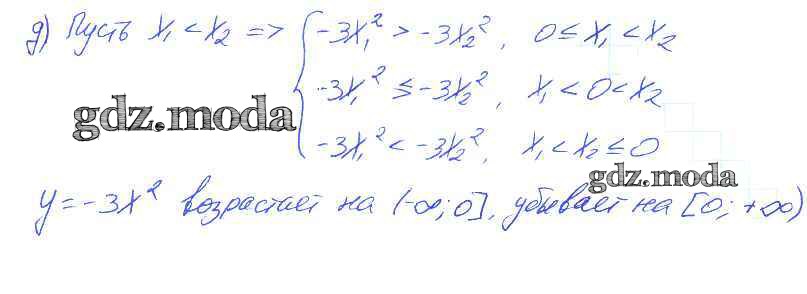 д) Пусть x₁ < x₂ => { -3x₁² > -3x₂², 0 ≤ x₁ < x₂
-3x₁² ≤ -3x₂², x₁ < 0 < x₂
gdz.moda
-3x₁² < -3x₂², x₁ < x₂ ≤ 0
gdz.moda
y = -3x² возрастает на (-∞; 0], убывает на [0; +∞)